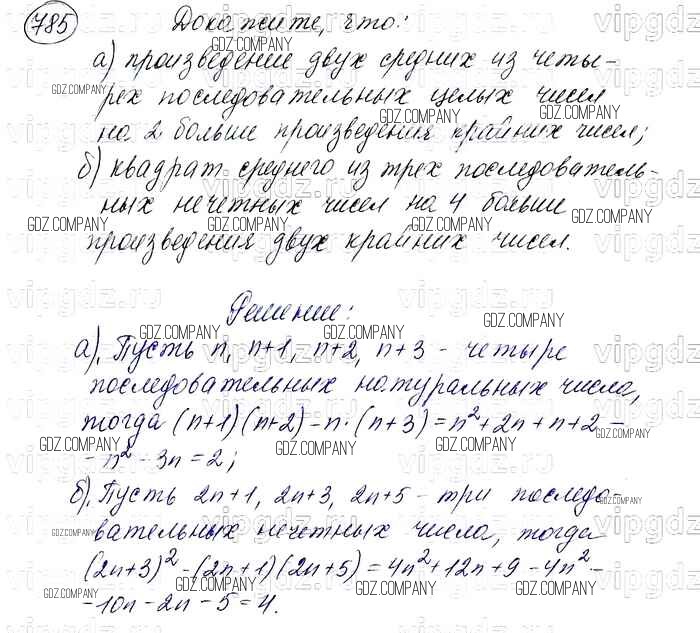 785 Докажите, что:
а) произведение двух средних из четы-
рех последовательных целых чисел
на 2 больше произведения крайних чисел;
б) квадрат среднего из трех последователь-
ных нечетных чисел на 4 больше
произведения двух крайних чисел.
Решение:
а). Пусть n, n+1, n+2, n+3 - четыре
последовательных натуральных числа,
тогда (n+1)(n+2) - n·(n+3) = n² + 2n + n + 2 -
- n² - 3n = 2;
б). Пусть 2n+1, 2n+3, 2n+5 - три последо-
вательных нечетных числа, тогда
(2n+3)² - (2n+1)(2n+5) = 4n² + 12n + 9 - 4n² -
- 10n - 2n - 5 = 4.
GDZ.COMPANY
vipgdz.ru